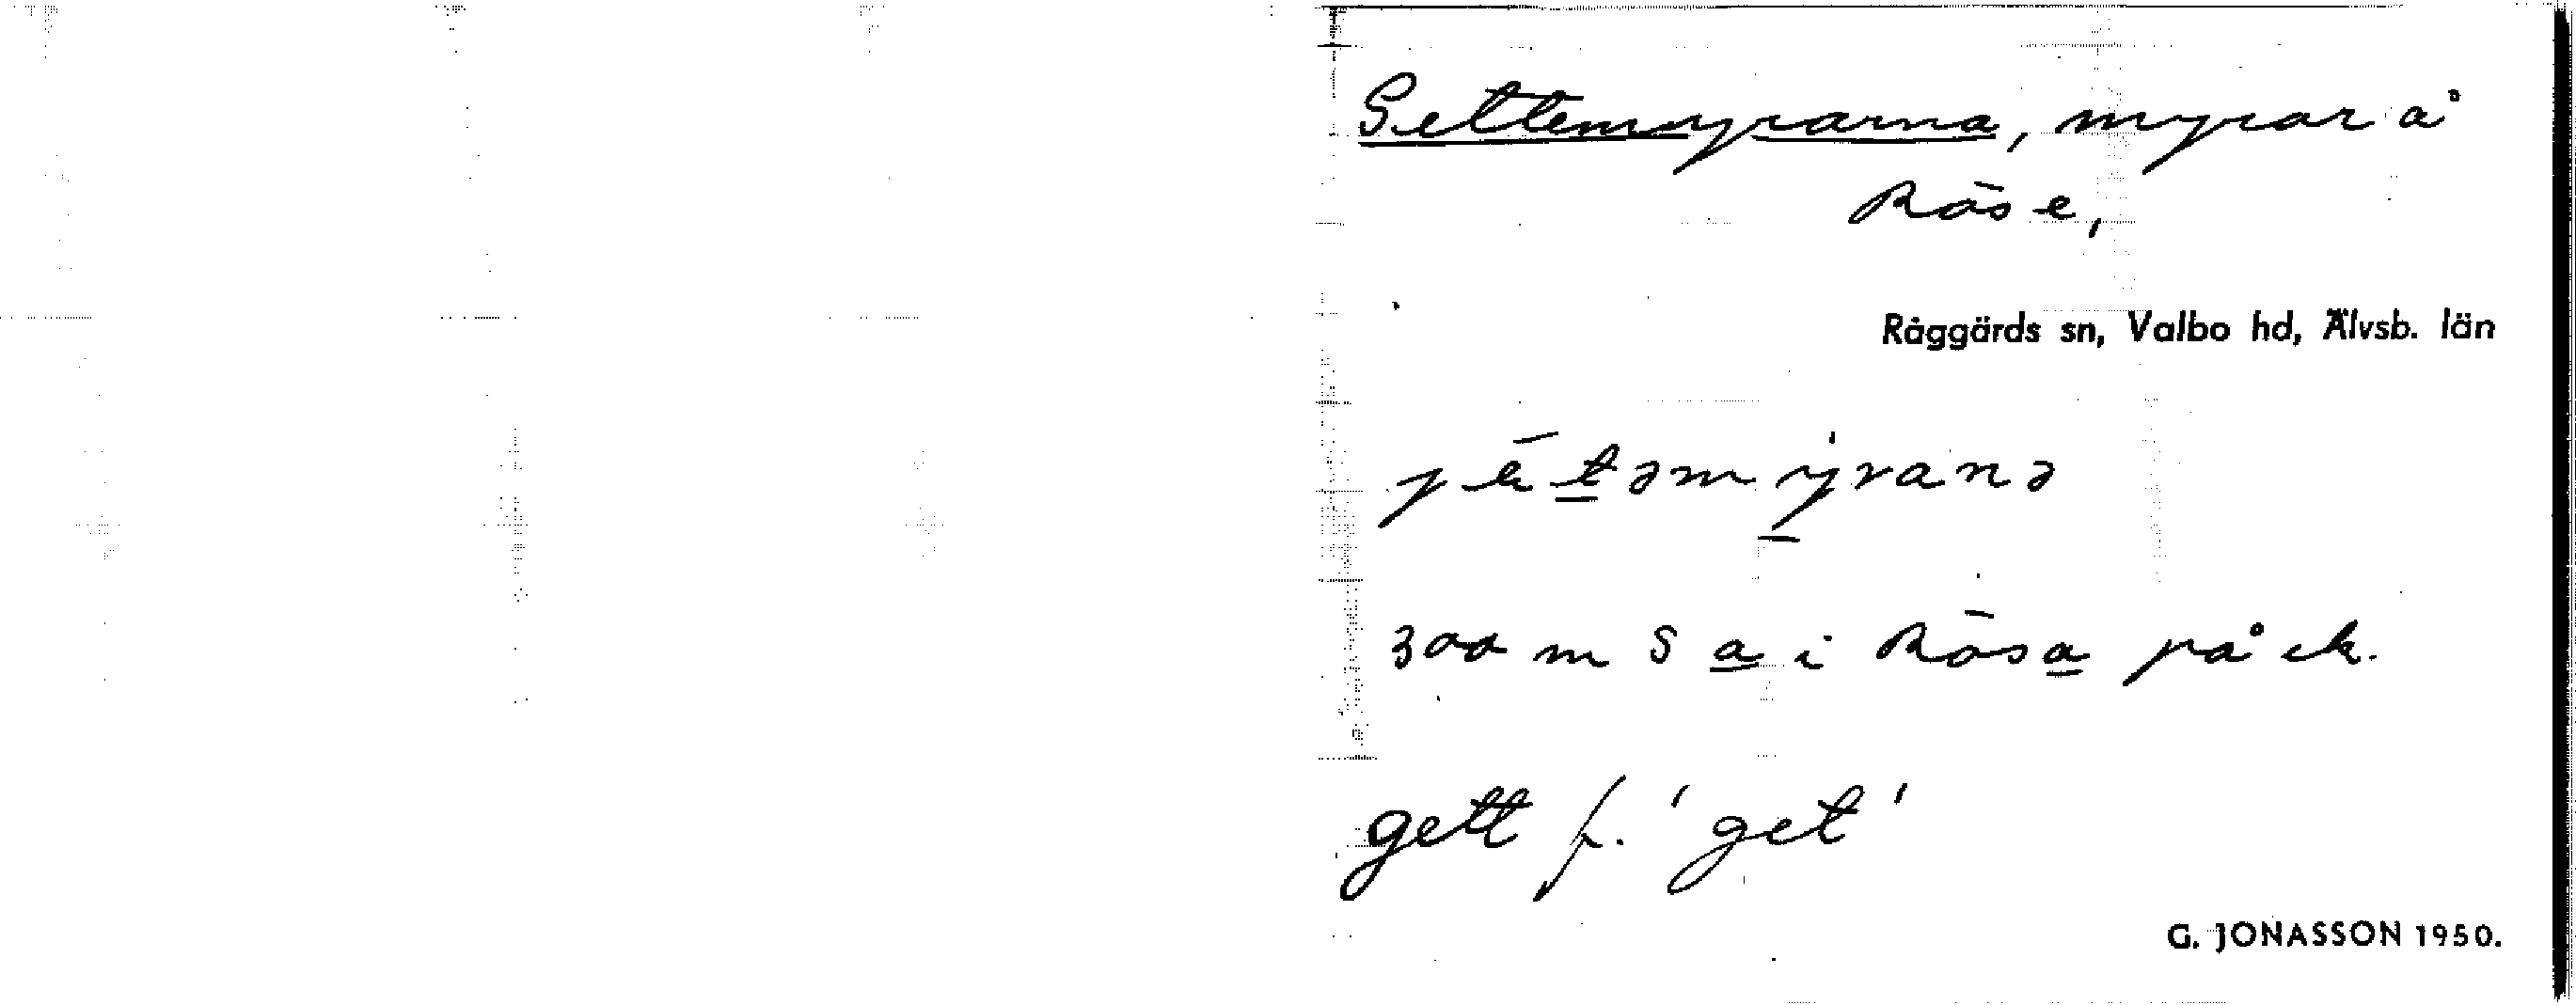 Gettemyrarna, myrar å
Röse,
Råggärds sn, Valbo hd, Älvsb. län
jètəmỳranə
300 m S a i Rösa på ek.
gett f. 'get'
G. JONASSON 1950.